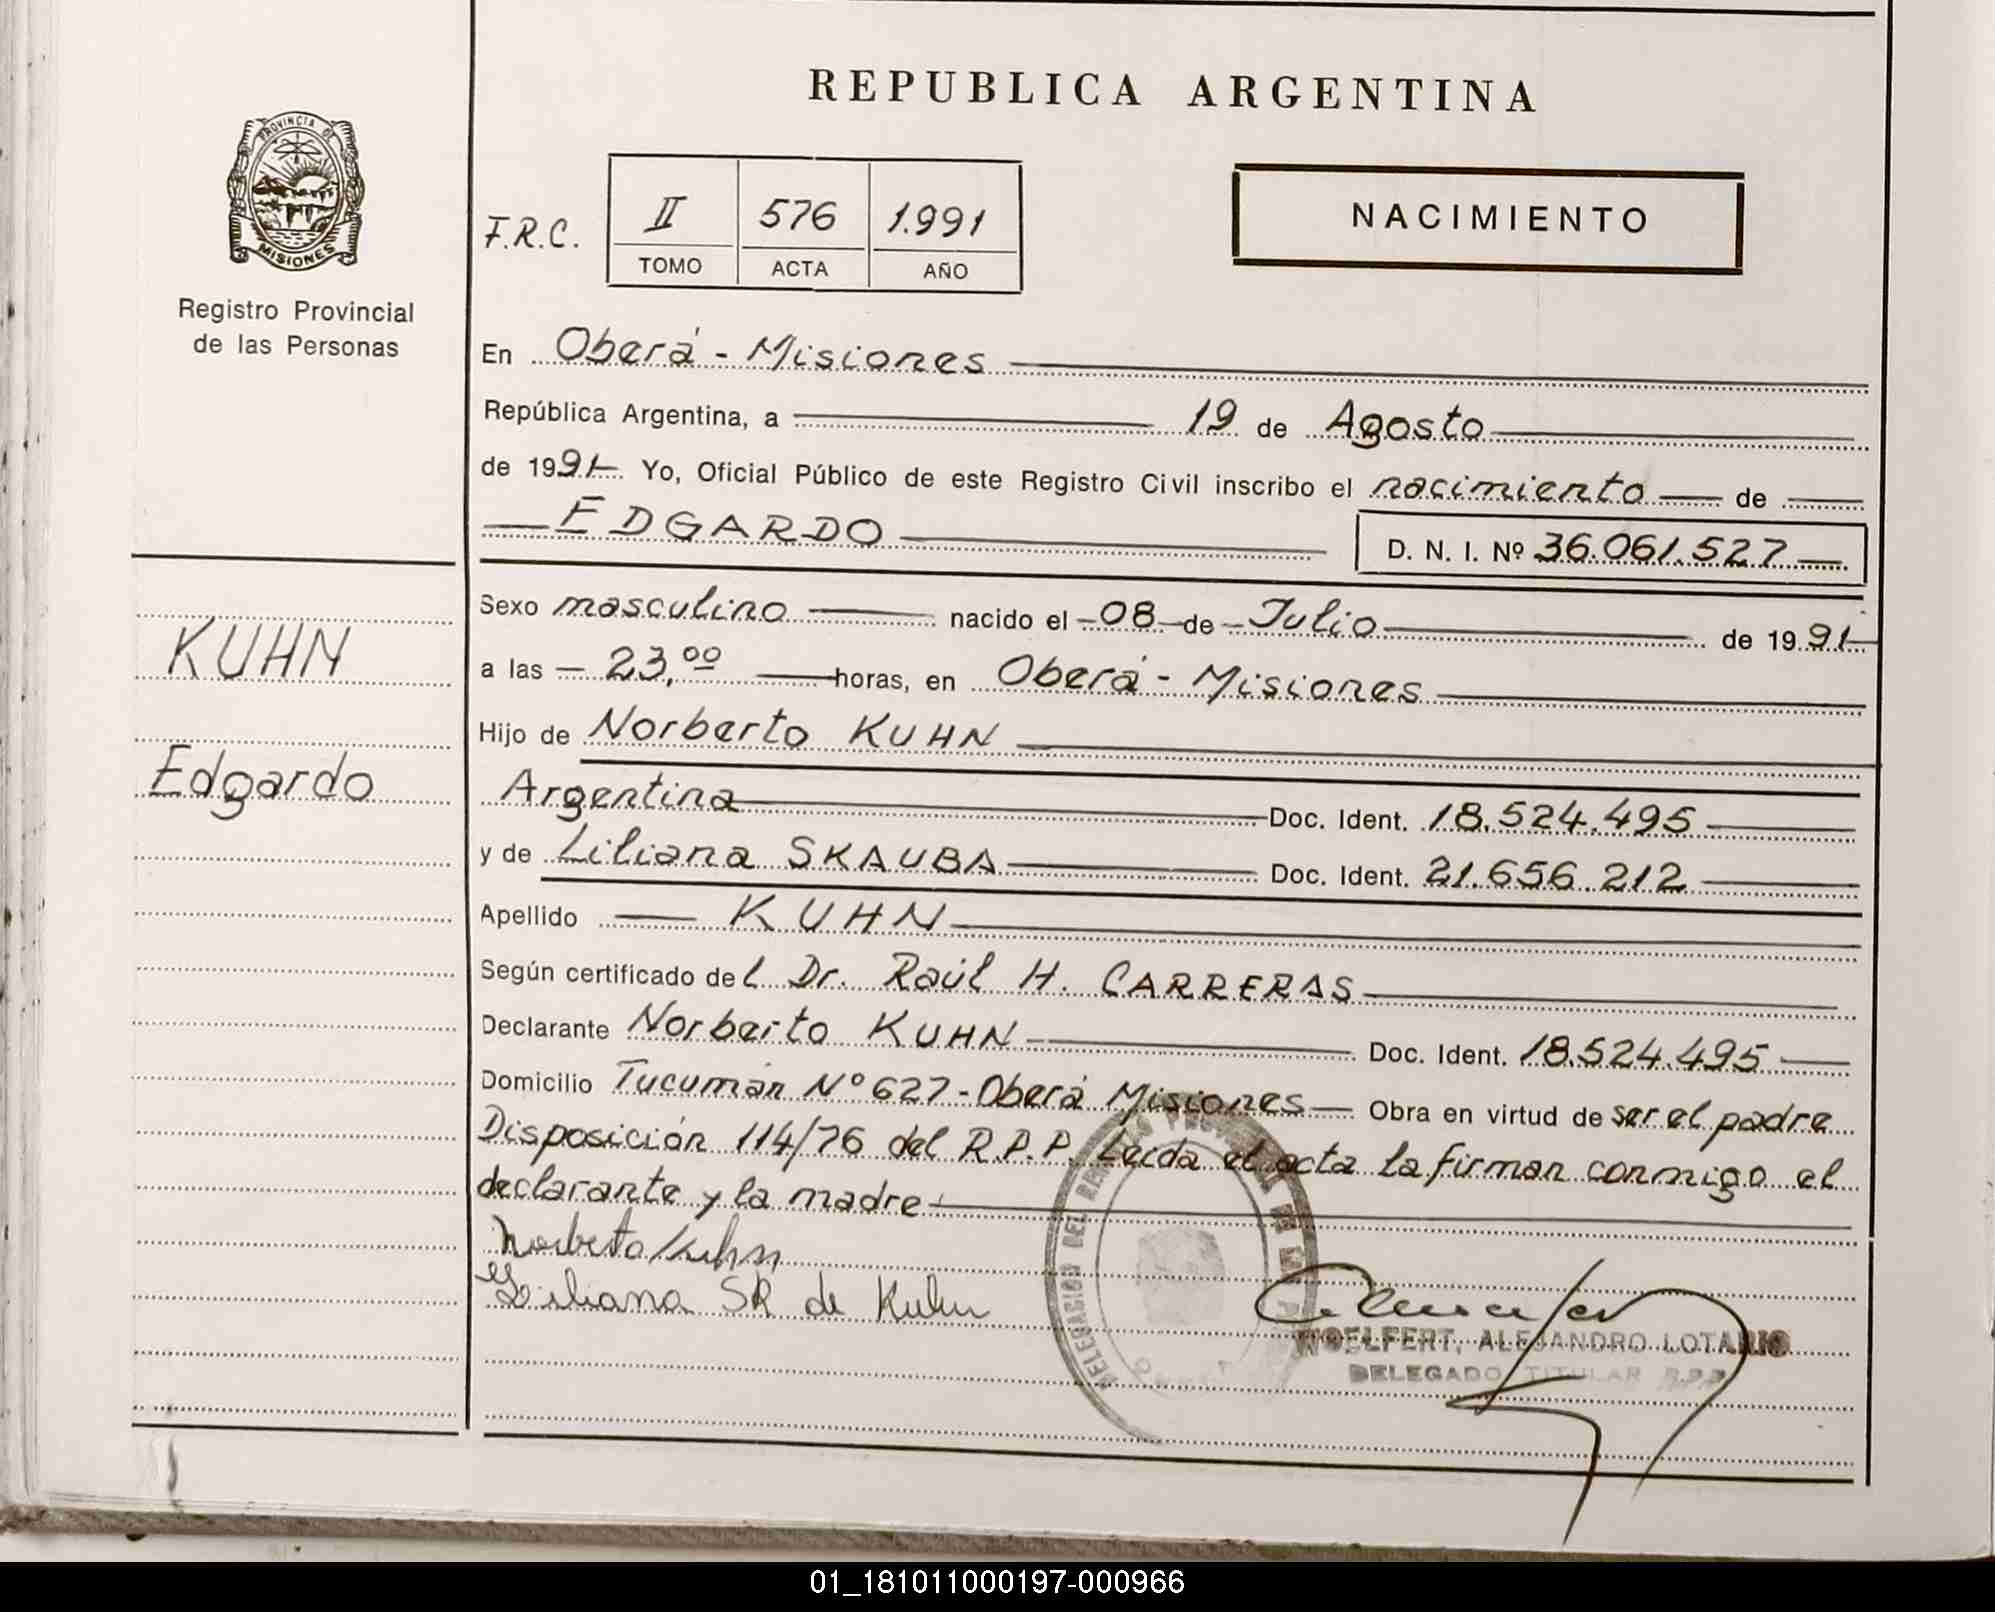 REPUBLICA ARGENTINA
PROVINCIA DE
MISIONES
Registro Provincial
de las Personas
F.R.C.
II 576 1.991
TOMO ACTA AÑO
NACIMIENTO
En Oberá - Misiones
República Argentina, a 19 de Agosto
de 1991 Yo, Oficial Público de este Registro Civil inscribo el nacimiento de
EDGARDO D. N. I. Nº 36.061.527
KUHN
Edgardo
Sexo masculino nacido el 08 de Julio de 1991
a las 23,00 horas, en Oberá - Misiones
Hijo de Norberto KUHN
Argentina Doc. Ident. 18.524.495
y de Liliana SKAUBA Doc. Ident. 21.656.212
Apellido KUHN
Según certificado del Dr. Raúl H. CARRERAS
Declarante Norberto KUHN Doc. Ident. 18.524.495
Domicilio Tucumán Nº 627 - Oberá Misiones Obra en virtud de ser el padre
Disposición 114/76 del R.P.P. Leída el acta la firman conmigo el
declarante y la madre
Norberto Kuhn
Liliana SK de Kuhn
DELEGACION DEL REGISTRO
WOELFERT, ALEJANDRO LOTARIO
DELEGADO TITULAR R.P.P.
01_181011000197-000966